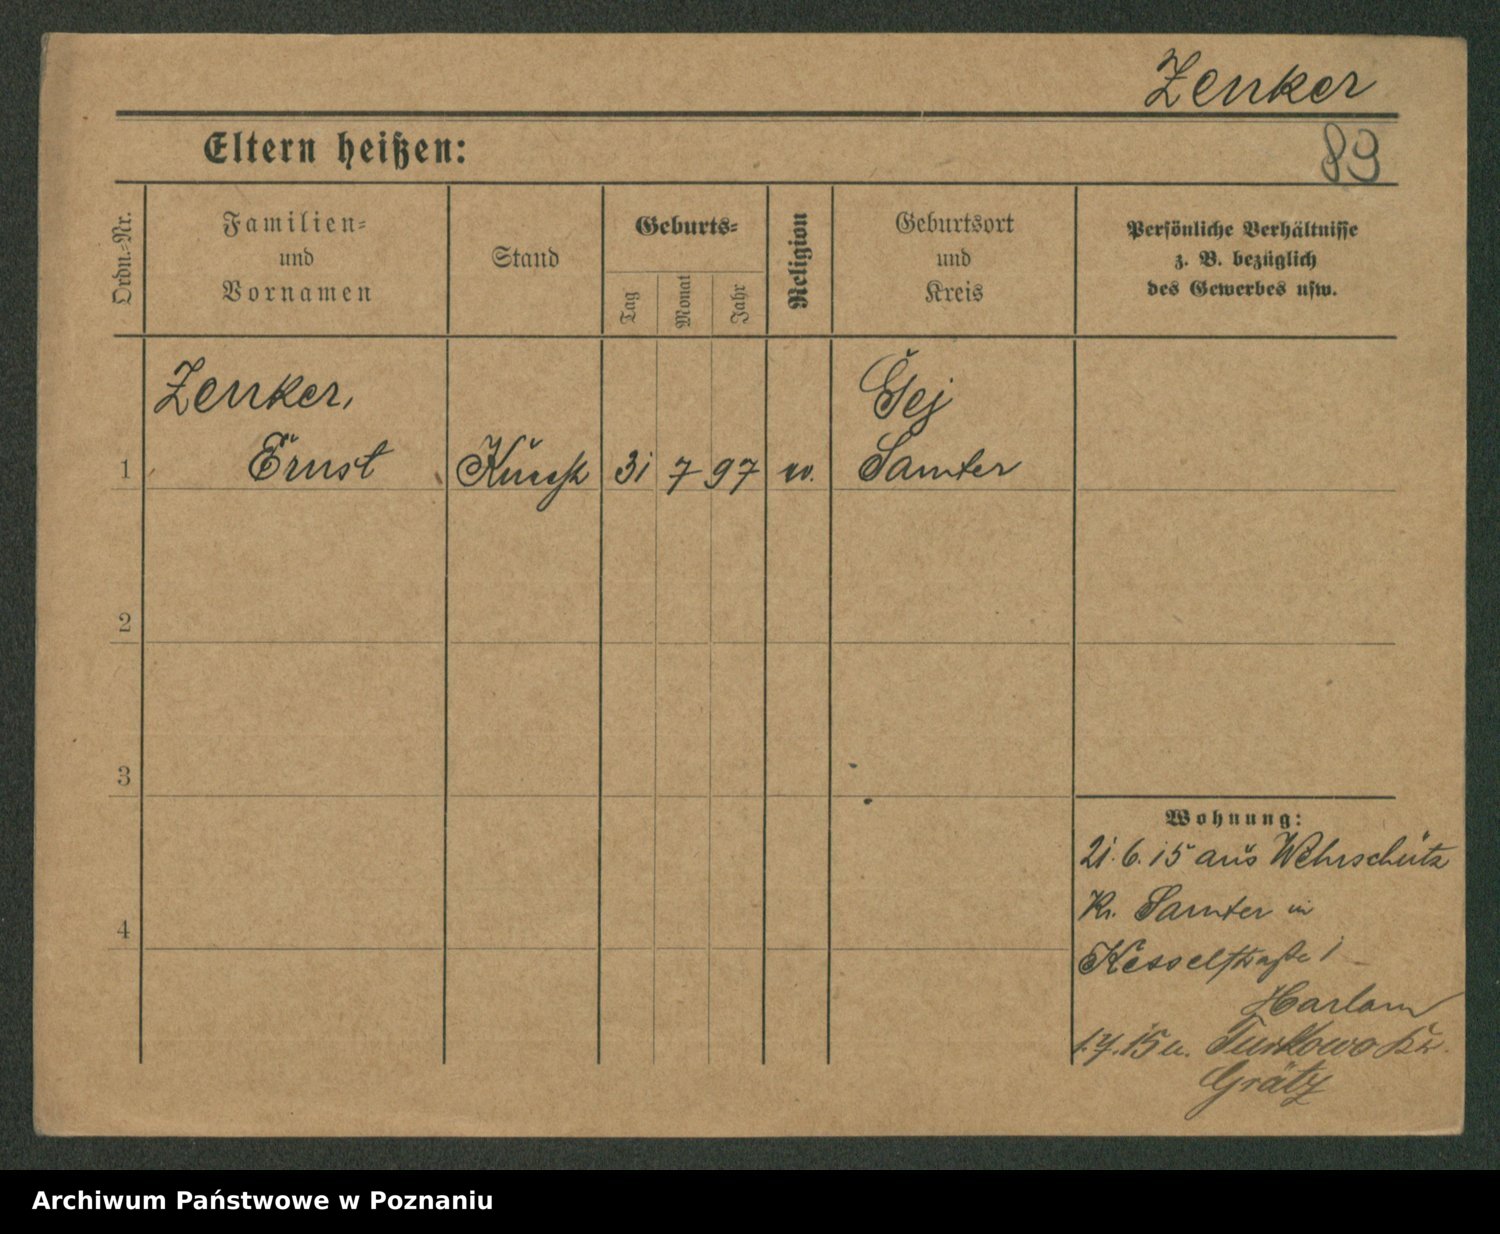 Zenker
Eltern heißen:
89
Ordn.-Nr.
Familien-
und
Vornamen
Stand
Geburts-
Tag
Monat
Jahr
Religion
Geburtsort
und
Kreis
Persönliche Verhältnisse
z. B. bezüglich
des Gewerbes usw.
Zenker,
Ernst
31 7 97
Gej
Samter
1
2
3
4
Wohnung:
21.6.15 aus Wehrschütz
Kr. Samter in
Kesselstraße 1
1.7.15 n. Turkowo Kr.
Grätz
Archiwum Państwowe w Poznaniu